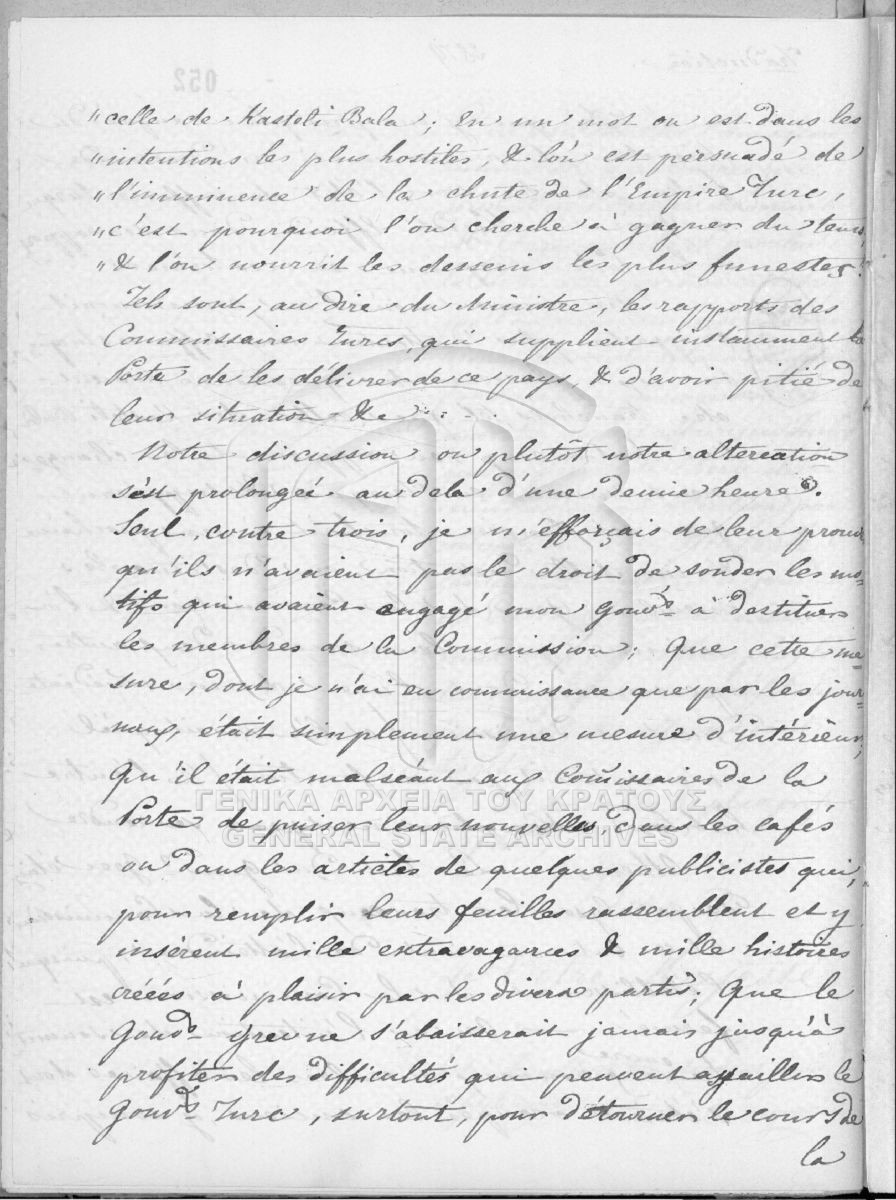 "celle de Kastoli Bala; En un mot on est dans les
"intentions les plus hostiles, & l'on est persuadé de
"l'imminence de la chute de l'Empire Turc,
"c'est pourquoi l'on cherche à gagner du tems,
"& l'on nourrit les desseins les plus funestes."
Tels sont, au dire du Ministre, les rapports des
Commissaires Turcs, qui supplient instamment la
Porte de les délivrer de ce pays, & d'avoir pitié de
leur situation &c. . . . .
Notre discussion ou plutôt notre altercation
s'est prolongée au dela d'une demie heure.
Seul, contre trois, je m'efforçais de leur prouver
qu'ils n'avaient pas le droit de sonder les mo-
tifs qui avaient engagé mon Gouvt à destituer
les membres de la Commission; Que cette me-
sure, dont je n'ai eu connaissance que par les jour-
naux, était simplement une mesure d'intérieur;
Qu'il était malséant aux Comissaires de la
ΓΕΝΙΚΑ ΑΡΧΕΙΑ ΤΟΥ ΚΡΑΤΟΥΣ
Porte de puiser leur nouvelles, dans les cafés
GENERAL STATE ARCHIVES
ou dans les articles de quelques publicistes qui,
pour remplir leurs feuilles rassemblent et y
insèrent mille extravagances & mille histoires
créées à plaisir par les divers partis; Que le
Gouvt Grec ne s'abaisserait jamais jusqu'à
profiter des difficultés qui peuvent assaillir le
Gouvt Turc, surtout, pour détourner le cours de
la